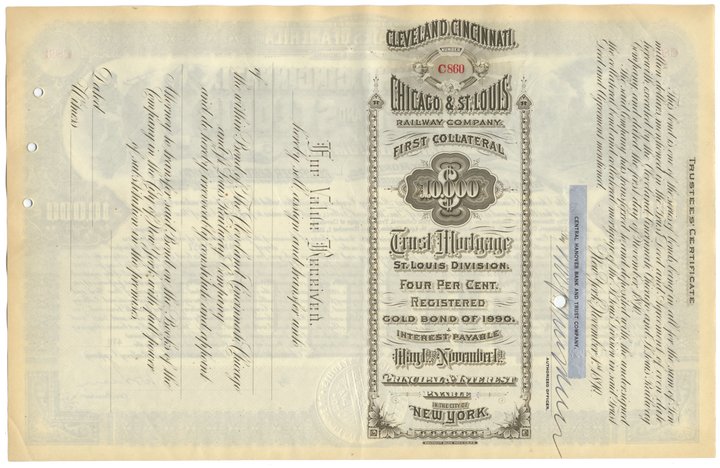 CLEVELAND, CINCINNATI,
NUMBER
C860
CHICAGO & ST. LOUIS
RAILWAY COMPANY.
FIRST COLLATERAL
$10,000
Trust Mortgage
ST. LOUIS DIVISION.
FOUR PER CENT.
REGISTERED
GOLD BOND OF 1990.
INTEREST PAYABLE
May 1st and November 1st
PRINCIPAL & INTEREST
PAYABLE
IN THE CITY OF
NEW YORK.
For Value Received,
hereby sell, assign and transfer unto
the within Bond of The Cleveland, Cincinnati, Chicago
and St. Louis Railway Company
and do hereby irrevocably constitute and appoint
Attorney to transfer said Bond on the Books of the
Company in the City of New York, with full power
of substitution in the premises.
Dated
Witness
TRUSTEES' CERTIFICATE.
This bond is one of the series of bonds being in all for the sum of Ten
million dollars mentioned in the Trust Deed of even date
herewith executed by The Cleveland, Cincinnati, Chicago and St. Louis Railway
Company, and dated the first day of November 1890.
The said Company has transferred to and deposited with the undersigned
the collateral bonds of the St. Louis Division in said Trust
Deed and Agreement mentioned.
New York, November 1st 1890.
CENTRAL HANOVER BANK AND TRUST COMPANY,
By
AUTHORIZED OFFICER.